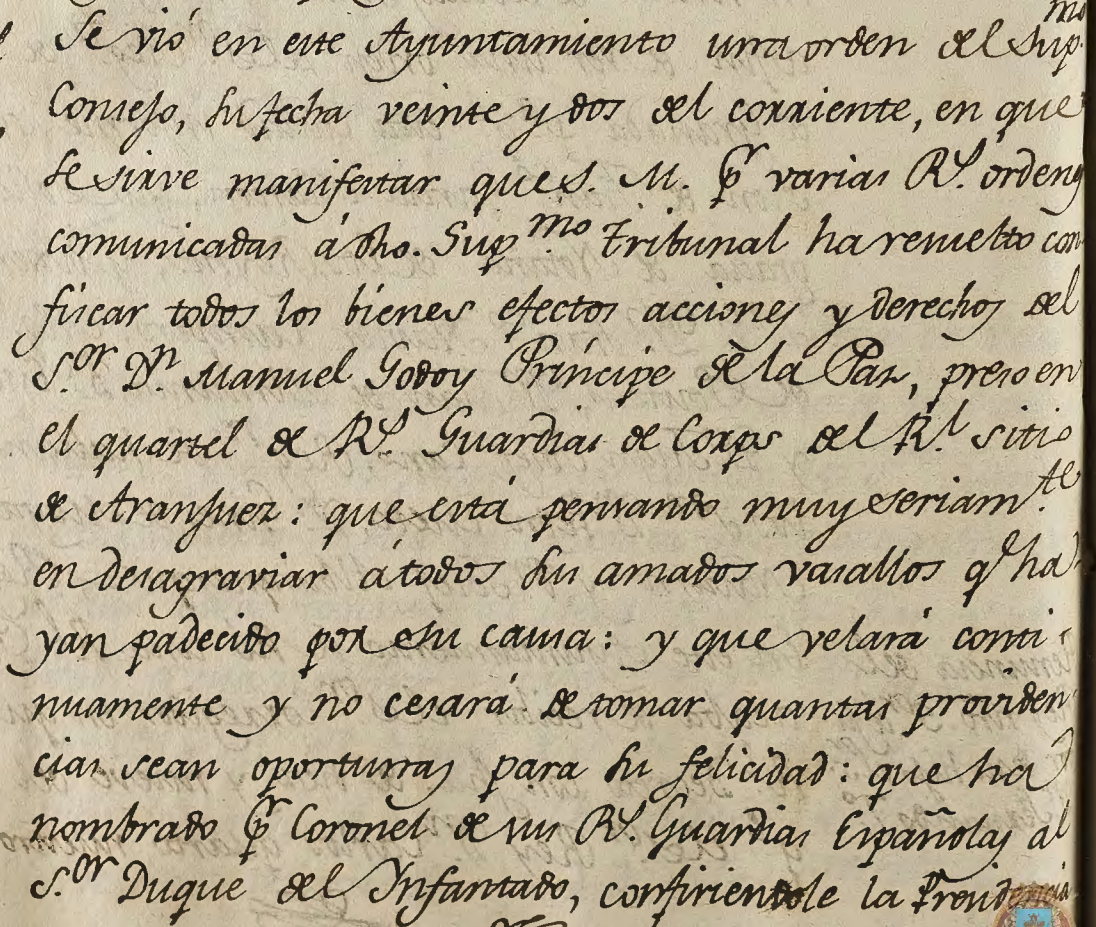 Se vió en este Ayuntamiento una orden del Sup.mo
Consejo, su fecha veinte y dos del corriente, en que
se sirve manifestar que S. M. pr varias Rs. ordenes
comunicadas á dho. Supmo Tribunal ha resuelto con
fiscar todos los bienes efectos acciones y derechos del
S.or D.n Manuel Godoy Príncipe de la Paz, preso en
el quartel de Rs. Guardias de Corps del Rl. sitio
de Aranjuez: que está pensando muy seriam.te
en desagraviar á todos sus amados vasallos qe ha
yan padecido por su causa: y que velará conti
nuamente y no cesará de tomar quantas providen
cias sean oportunas para su felicidad: que ha
nombrado pr Coronel de sus Rs. Guardias Españolas al
S.or Duque del Infantado, confiriendole la Presidencia